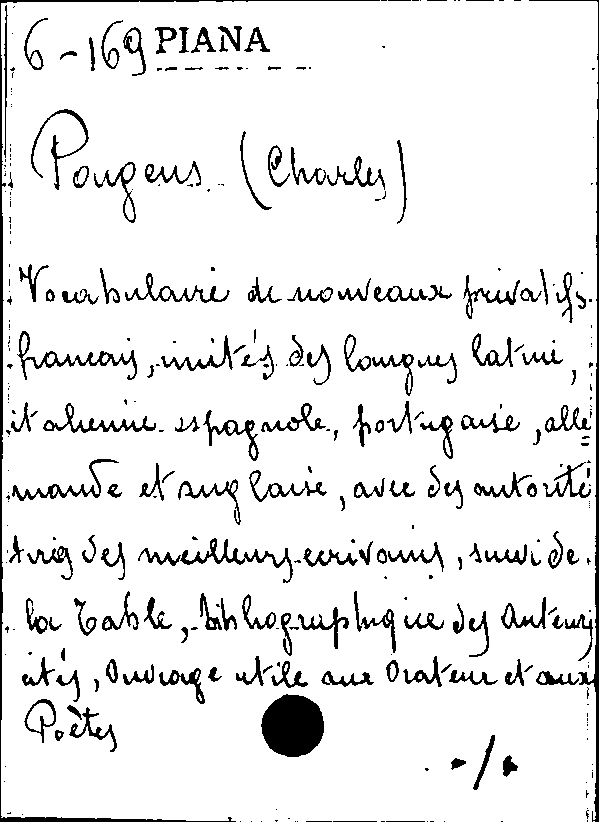 6-169 PIANA
Pougens (Charles)
Vocabulaire de nouveaux privatifs
français, imités des langues latine,
italienne espagnole, portugaise, alle=
mande et anglaise, avec des autorité
tirés des meilleurs ecrivains, suivi de
la Table, bibliographique des Auteurs
cités, Ouvrage utile aux Orateur et aux
Poètes
./.